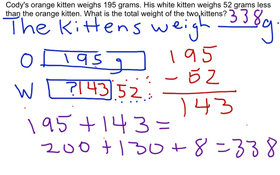 Cody's orange kitten weighs 195 grams. His white kitten weighs 52 grams less
than the orange kitten. What is the total weight of the two kittens?
The kittens weigh 338 g
O 195 g
195
- 52
143
W ? 143 52
195 + 143 =
200 + 130 + 8 = 338